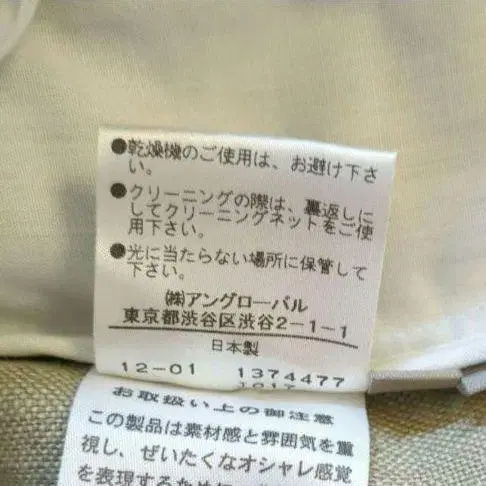 ●乾燥機のご使用は、お避け下さ
い。
●クリーニングの際は、裏返しに
してクリーニングネットをご使
用下さい。
●光に当たらない場所に保管して
下さい。
㈱アングローバル
東京都渋谷区渋谷2-1-1
日本製
12-01 1374477
お取扱い上の御注意
この製品は素材感と雰囲気を重
視し、ぜいたくなオシャレ感覚
を表現するために